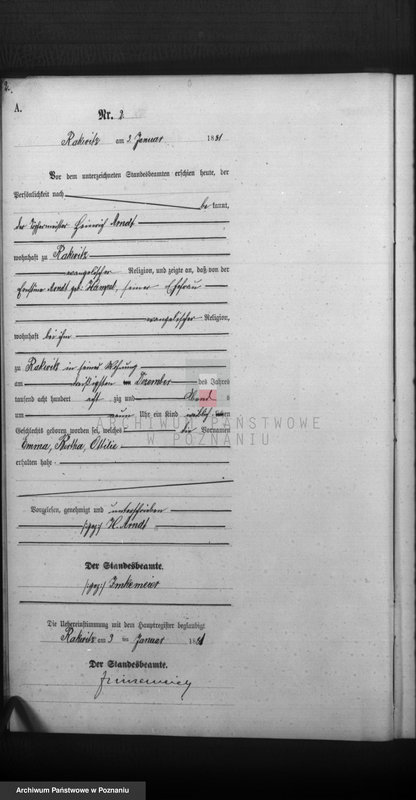 2.
A.
Nr. 2.
Rakwitz am 3. Januar 1881
Vor dem unterzeichneten Standesbeamten erschien heute, der
Persönlichkeit nach
be kannt,
der Töpfermeister Heinrich Arndt
wohnhaft zu Rakwitz
evangelischer Religion, und zeigte an, daß von der
Arndt geb. Hampel, seiner Ehefrau
evangelischer Religion,
wohnhaft bei ihm
zu Rakwitz in seiner Wohnung
am dreißigsten Dezember des Jahres
tausend acht hundert acht zig und Abends
um neun Uhr ein Kind weiblichen
Geschlechts geboren worden sei, welches die Vornamen
Emma, Bertha, Ottilie
erhalten habe.
Vorgelesen, genehmigt und unterschrieben
(gez.) H. Arndt
Der Standesbeamte.
(gez.)
Die Uebereinstimmung mit dem Hauptregister beglaubigt
Rakwitz am 3 ten Januar 1881
Der Standesbeamte.
ARCHIWUM PAŃSTWOWE
W POZNANIU
Archiwum Państwowe w Poznaniu